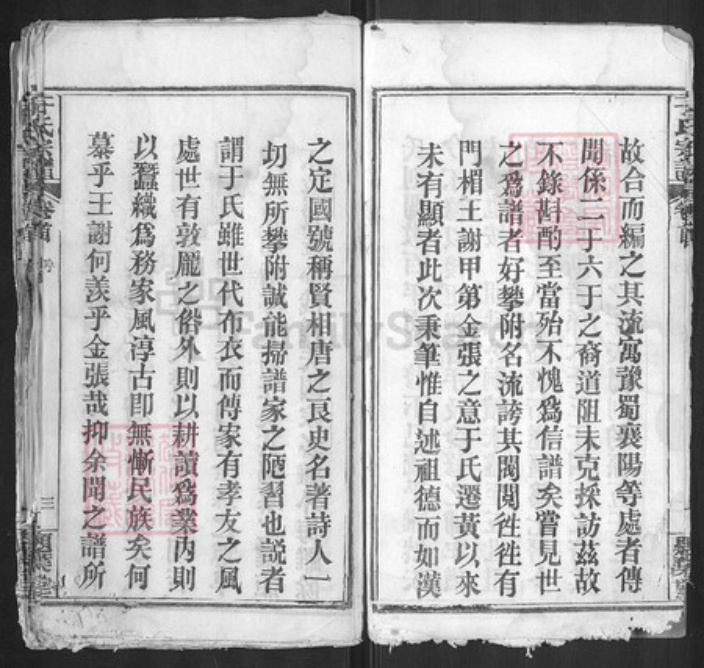 故合而編之其流寓豫蜀襄陽等處者傳
聞係二于六于之裔道阻未克採訪茲故
不錄斟酌至當殆不愧為信譜矣嘗見世
之為譜者好攀附名流誇其閥閱徃徃有
門楣王謝甲第金張之意于氏遷黃以來
未有顯者此次秉筆惟自述祖德而如漢
之定國號稱賢相唐之良史名著詩人一
切無所攀附誠能掃譜家之陋習也說者
謂于氏雖世代布衣而傳家有孝友之風
處世有敦龐之俗外則以耕讀為業內則
以蠶織為務家風淳古卽無慚民族矣何
慕乎王謝何羨乎金張哉抑余聞之譜所
于氏宗譜 卷首
三
FamilySearch